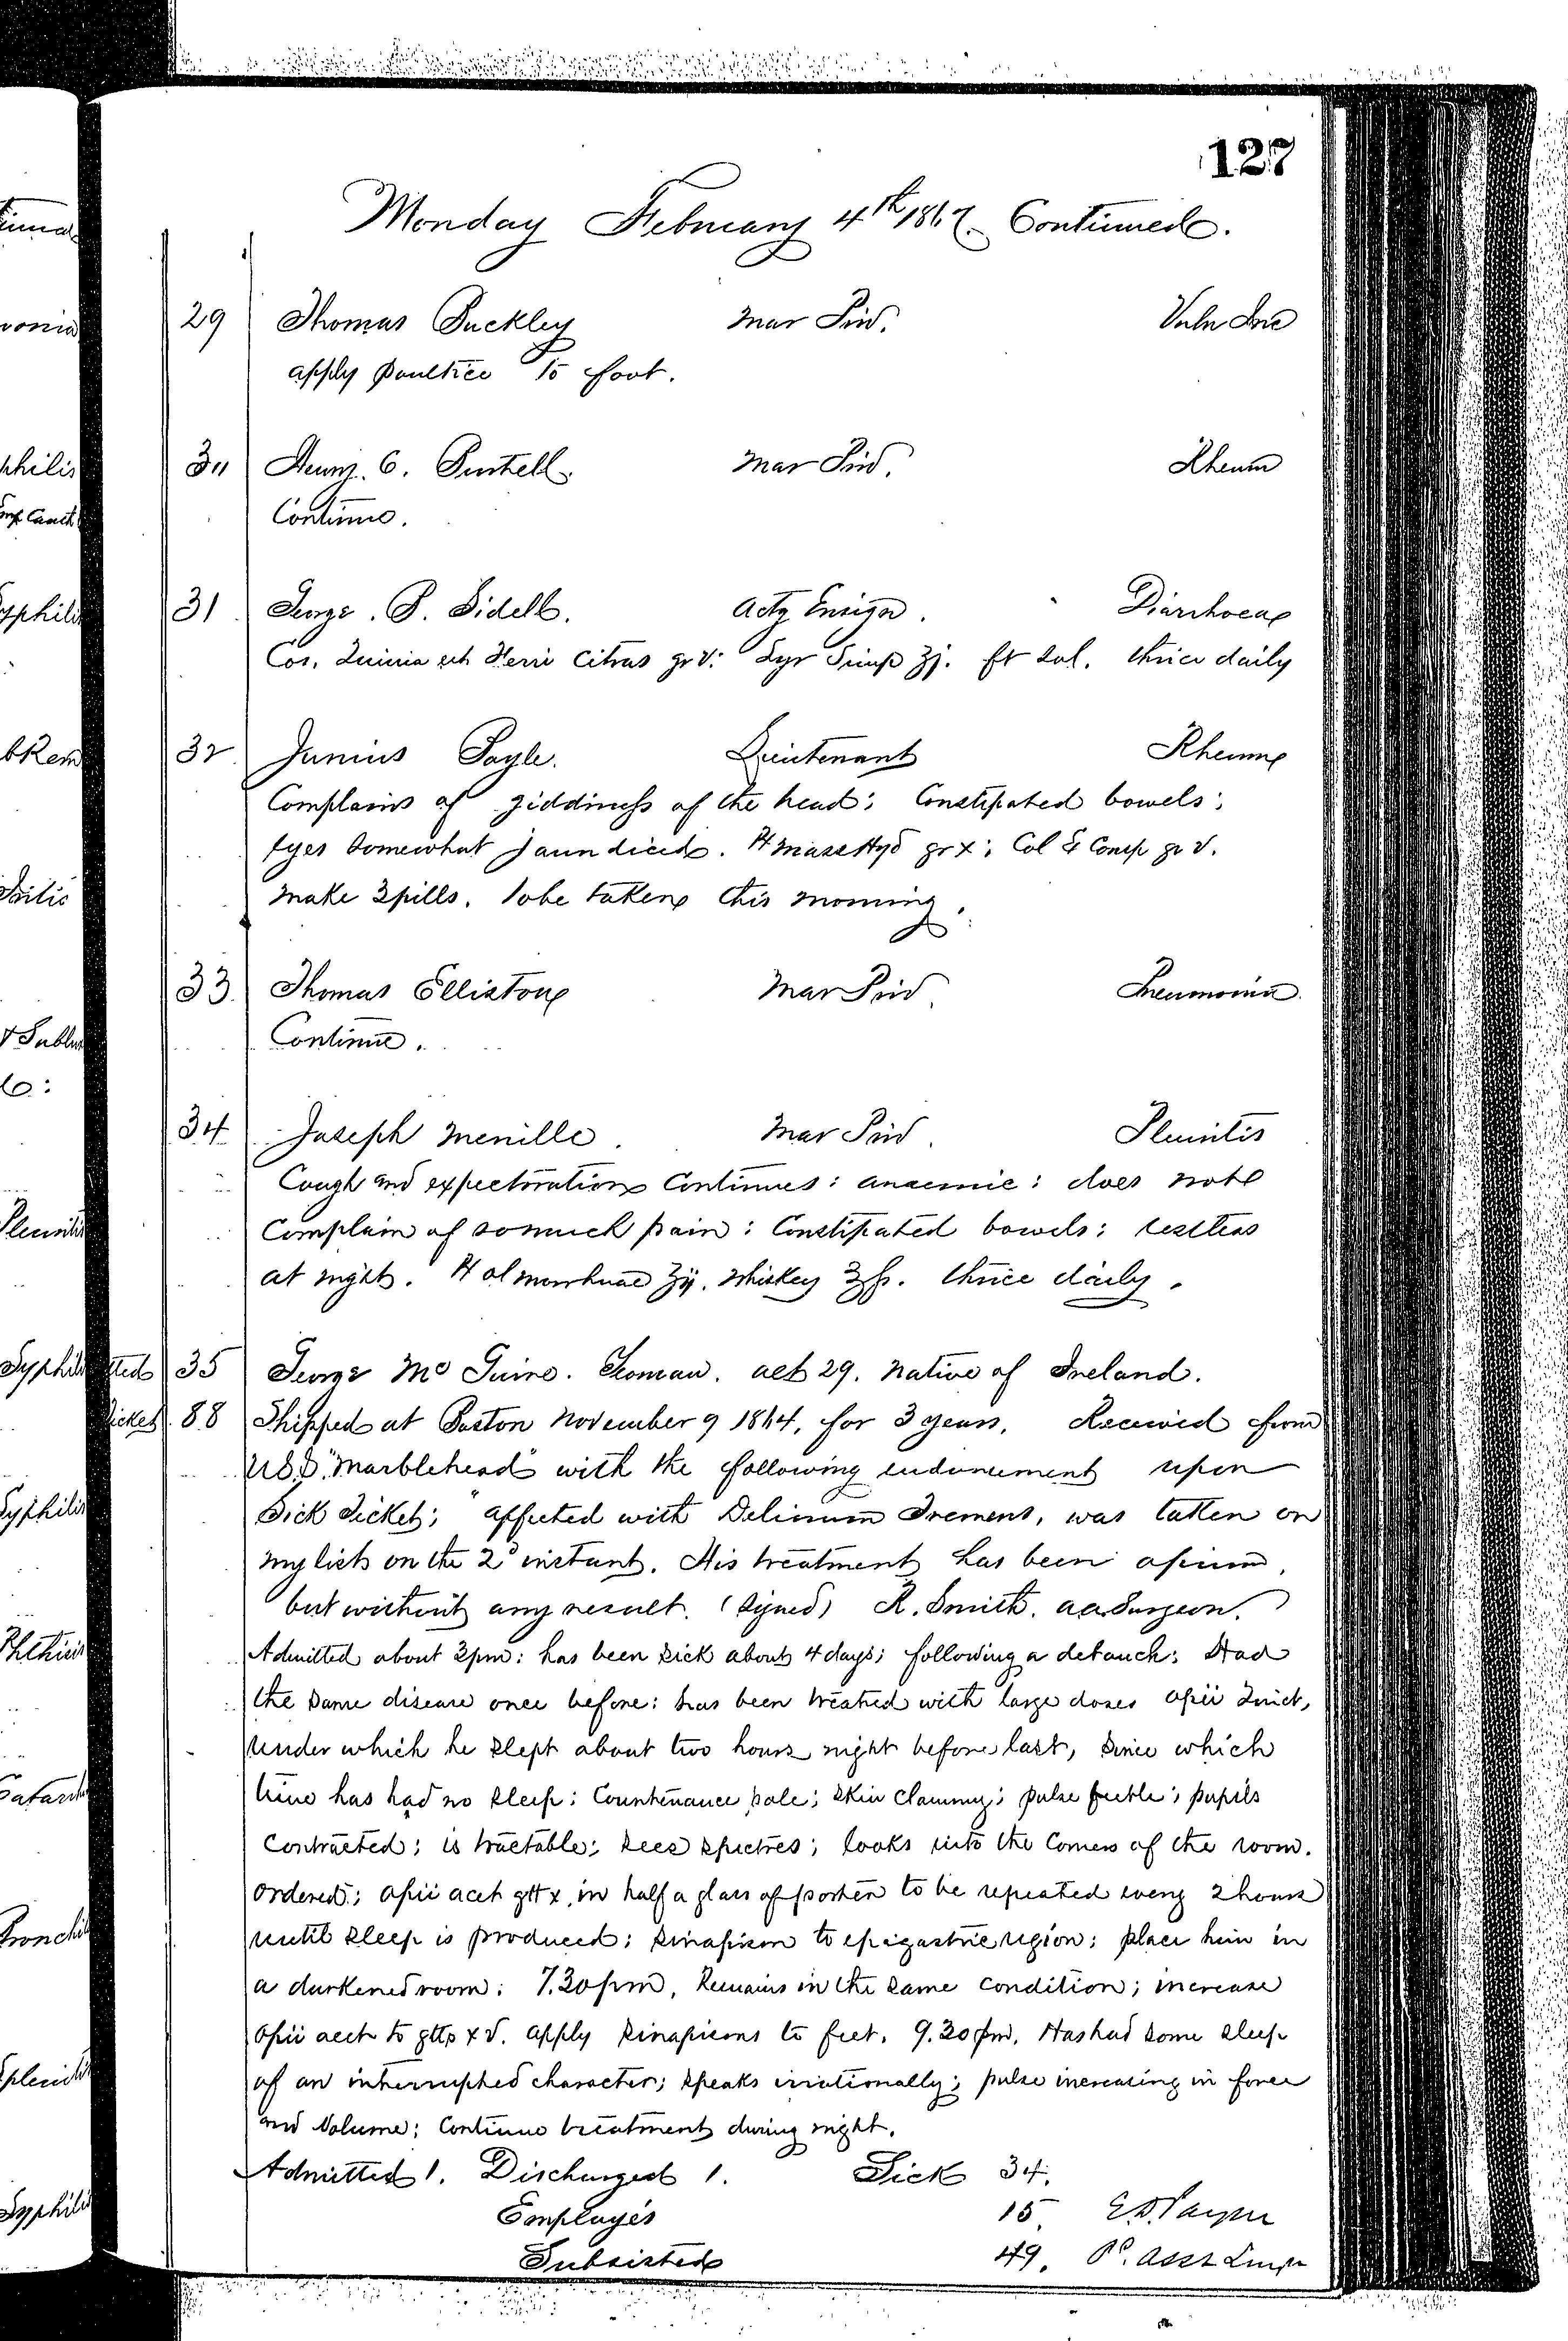 127
Monday February 4th 1867. Continued.
29 Thomas Buckley Mar Priv. Vuln Inc
apply poultice to foot.
30 Henry C. Purtell. Mar Priv. Rheum
Continue.
31 George. P. Sidell. Actg Ensign. Diarrhoea
Cos. Quinia et Ferri Citras gr V: Syr Simp ʒj. ft sol. thrice daily
32 Junius Boyle. Lieutenant Rheum
Complains of giddiness of the head; Constipated bowels;
Eyes somewhat jaundiced. ℞ mass Hyd gr x; Col & Comp gr V.
make 3 pills. to be taken this morning.
33 Thomas Elliston Mar Priv Pneumonia
Continue.
34 Joseph Menille. Mar Priv. Pleuritis
Cough and expectoration Continues: anaemic: does not
Complain of so much pain: Constipated bowels: restless
at night. ℞ ol morrhuae ʒij. Whiskey ℥ß. thrice daily.
35 George McGuire. Yeoman. aet 29. native of Ireland.
Ticket 88 Shipped at Boston November 9 1864, for 3 years. Received from
U.S.S. "Marblehead" with the following endorsement upon
Sick Ticket; "affected with Delirium Tremens, was taken on
my list on the 2d instant. His treatment has been opium,
but without any result. (signed) R. Smith. aa Surgeon."
Admitted about 3pm: has been sick about 4 days; following a debauch; Had
the same disease once before: has been treated with large doses opii Tinct,
under which he slept about two hours night before last, since which
time has had no sleep; Countenance pale; skin clammy; pulse feeble; pupils
contracted; is tractable; sees spectres; looks into the Corners of the room.
Ordered; opii acet gtt x, in half a glass of porter to be repeated every 2 hours
until sleep is produced; sinapism to epigastric region; place him in
a darkened room: 7.30 pm, Remains in the same condition; increase
opii acet to gtts xv. apply sinapisms to feet. 9.30 pm. Has had some sleep
of an interrupted character; speaks irrationally; pulse increasing in force
and volume; Continue treatment during night.
Admitted 1. Discharged 1. Sick 34.
Employés 15 E.D. Payne
Subsisted 49. Pd. Asst Surgn